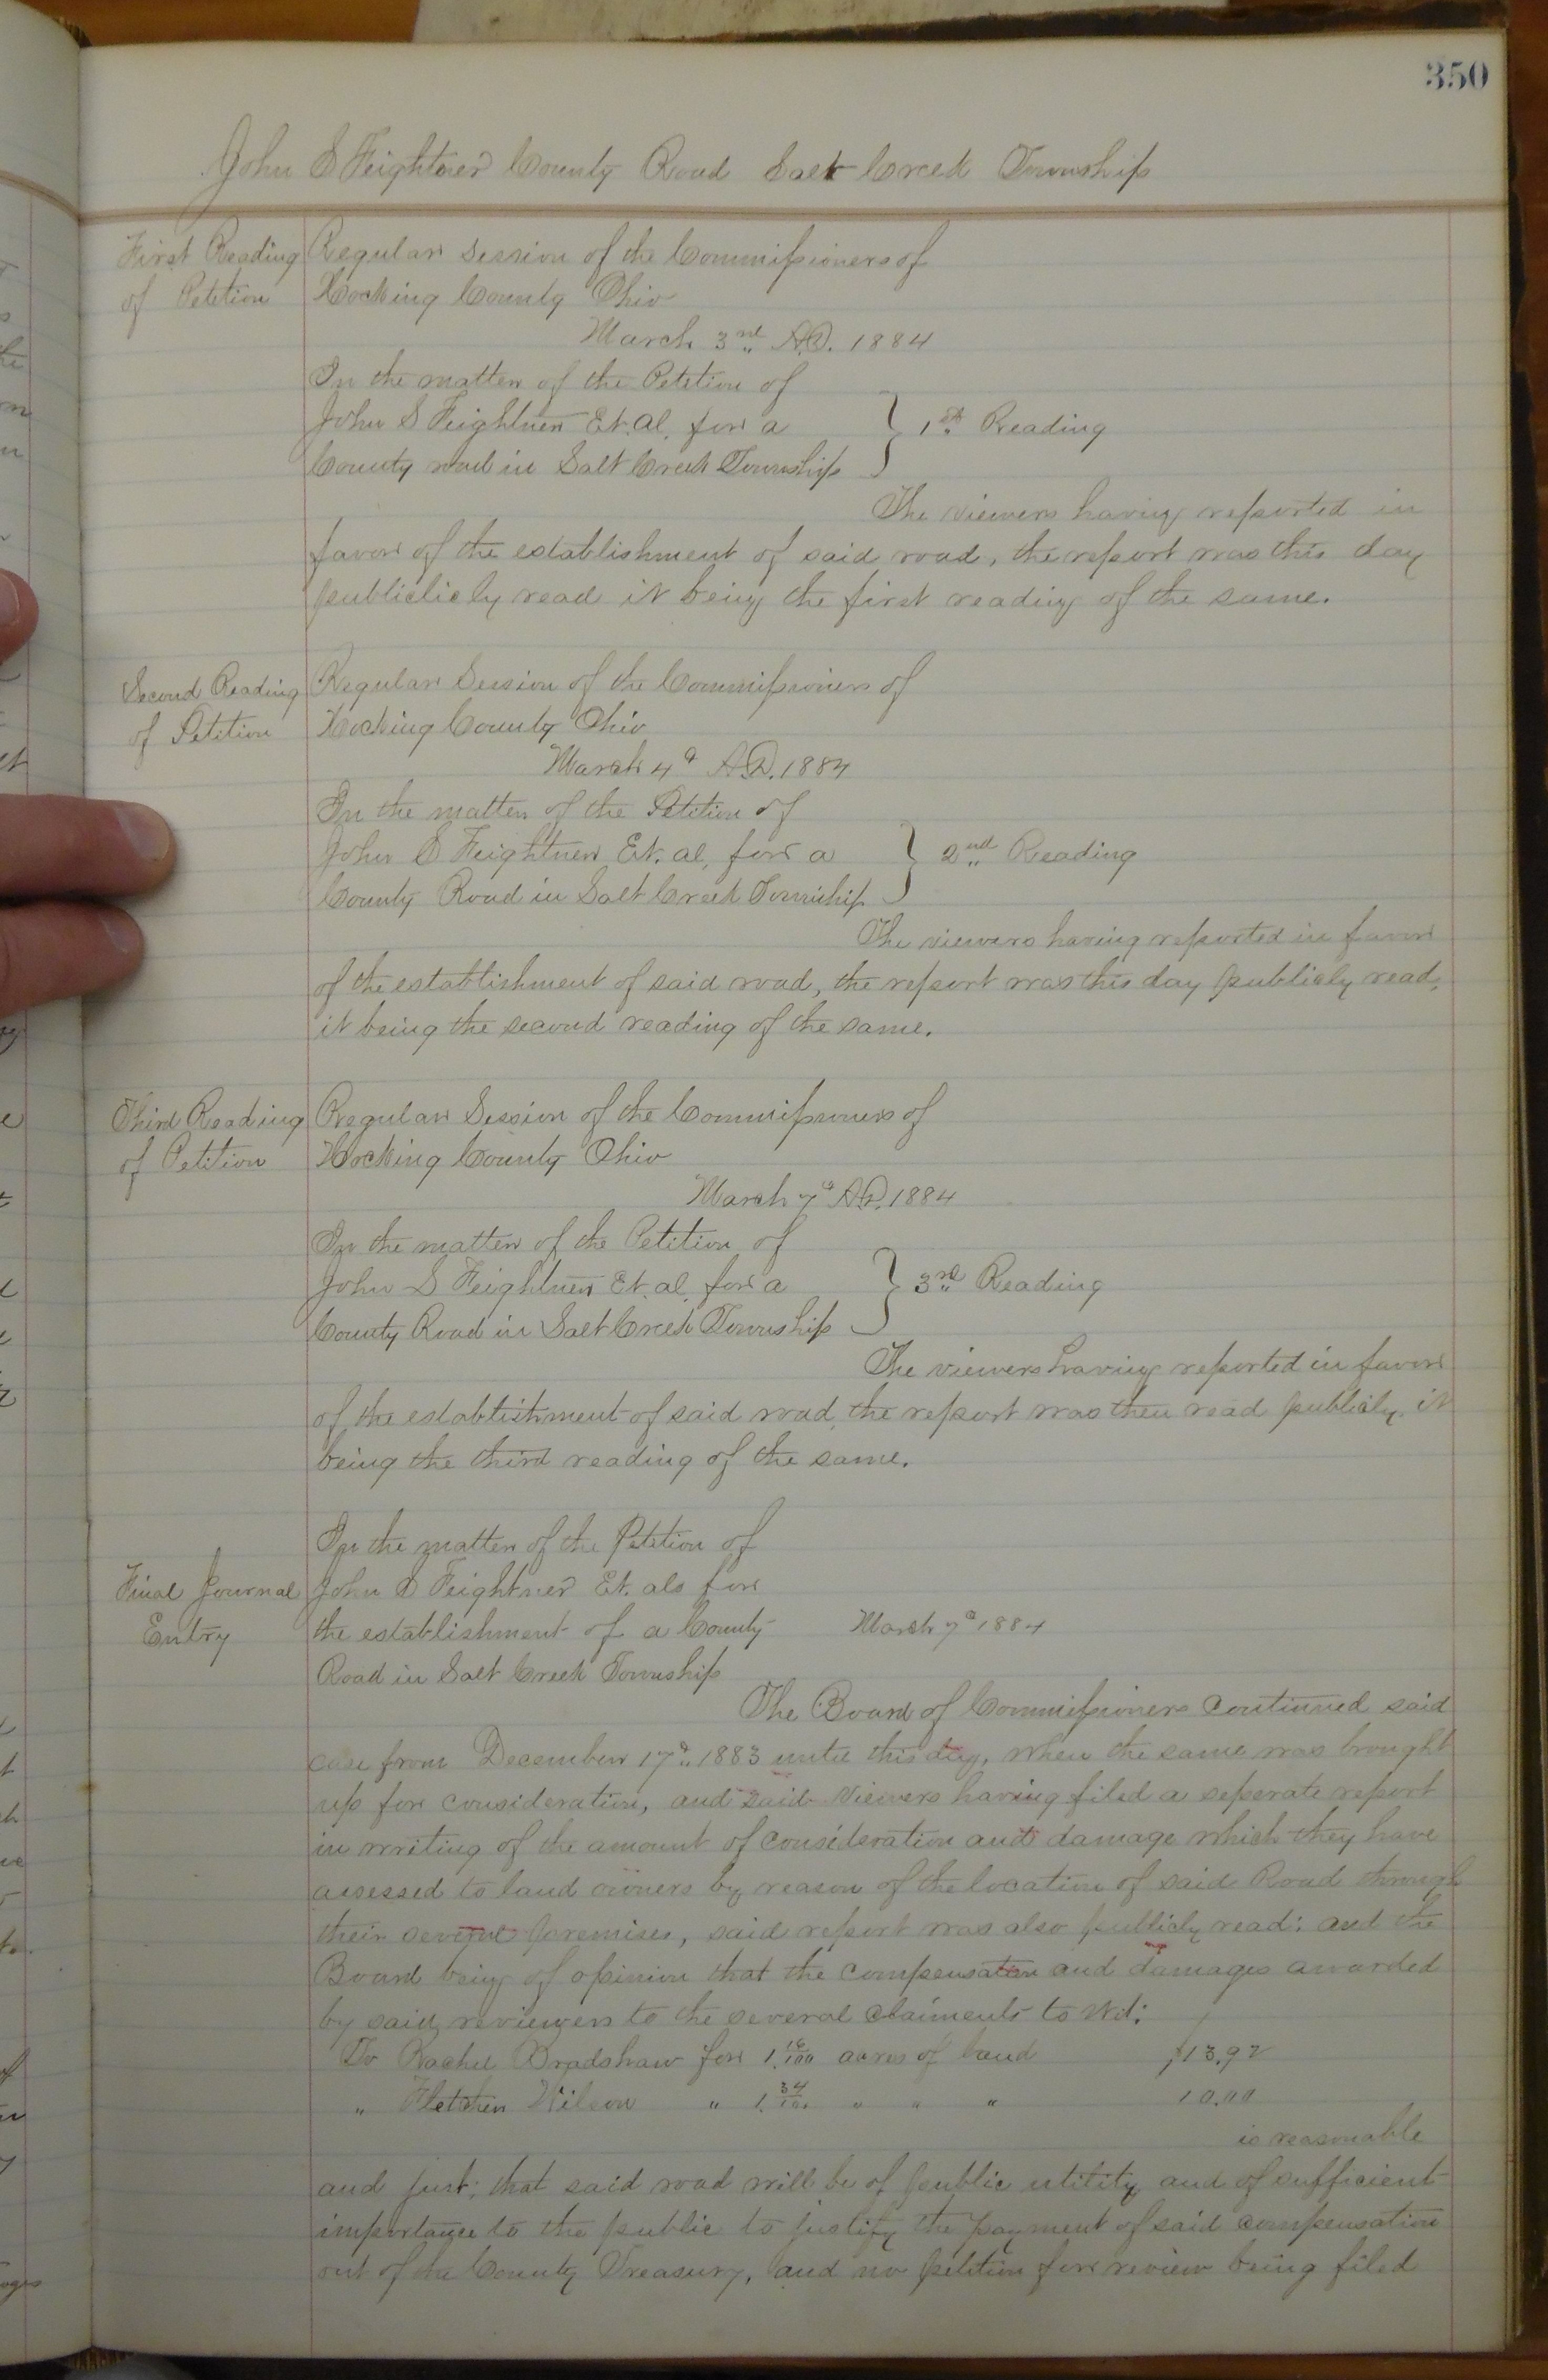 350
John S Feightner County Road Salt Creek Township
First Reading
of Petition
Regular Session of the Commissioners of
Hocking County Ohio
March 3rd A.D. 1884
In the matter of the Petition of
John S Feightner Et. al. for a
County road in Salt Creek Township
} 1st Reading
The viewers having reported in
favor of the establishment of said road, the report was this day
publiclicly read it being the first reading of the same.
Second Reading
of Petition
Regular Session of the Commissioners of
Hocking County Ohio
March 4th A.D. 1884
In the matter of the Petition of
John S Feightner Et. al. for a
County Road in Salt Creek Township
} 2nd Reading
The viewers having reported in favor
of the establishment of said road, the report was this day publicly read,
it being the second reading of the same.
Third Reading
of Petition
Regular Session of the Commissioners of
Hocking County Ohio
March 7th A.D. 1884
In the matter of the Petition of
John S Feightner Et. al. for a
County Road in Salt Creek Township
} 3rd Reading
The viewers having reported in favor
of the establishment of said road, the report was then read publicly, it
being the third reading of the same.
Final Journal
Entry
In the matter of the Petition of
John S Feightner Et. als for
the establishment of a County
Road in Salt Creek Township
March 7th 1884
The Board of Commissioners continued said
case from December 17th 1883 until this day, when the same was brought
up for consideration, and said viewers having filed a seperate report
in writing of the amount of consideration and damage which they have
assessed to land owners by reason of the location of said Road through
their several premises, said report was also publicly read: and the
Board being of opinion that the compensation and damages awarded
by said reviewers to the several claiments to wit:
To Rachel Bradshaw for 1.16/100 acres of land $13.92
" Fletcher Wilson " 1.34/100 " " " 10.00
is reasonable
and just; that said road will be of public utility and of sufficient
importance to the public to justify the payment of said compensation
out of the County Treasury, and no petition for review being filed